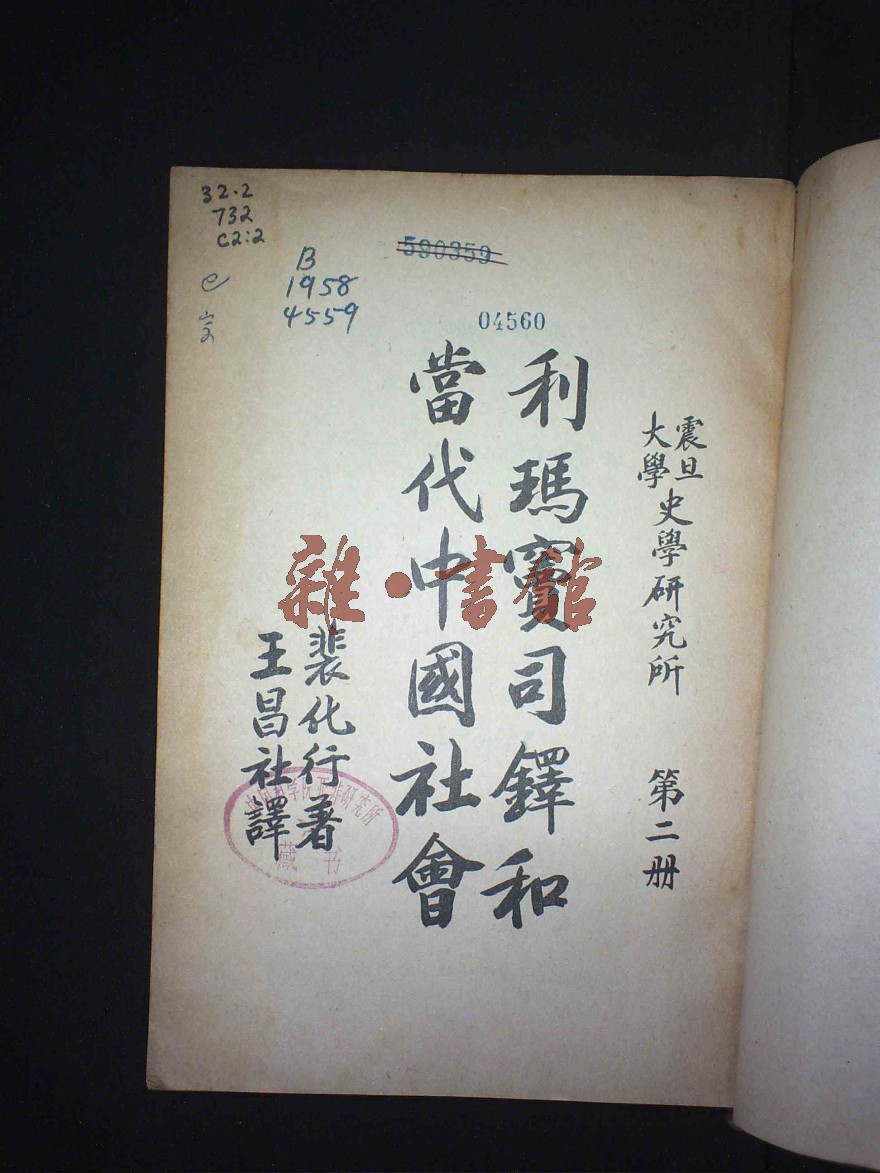 32·2
732
C2:2
B
1958
4559
590359
04560
震旦
大學
史學研究所 第二册
利瑪竇司鐸和
當代中國社會
裴化行著
王昌社譯
研究所
藏书
雜·書館